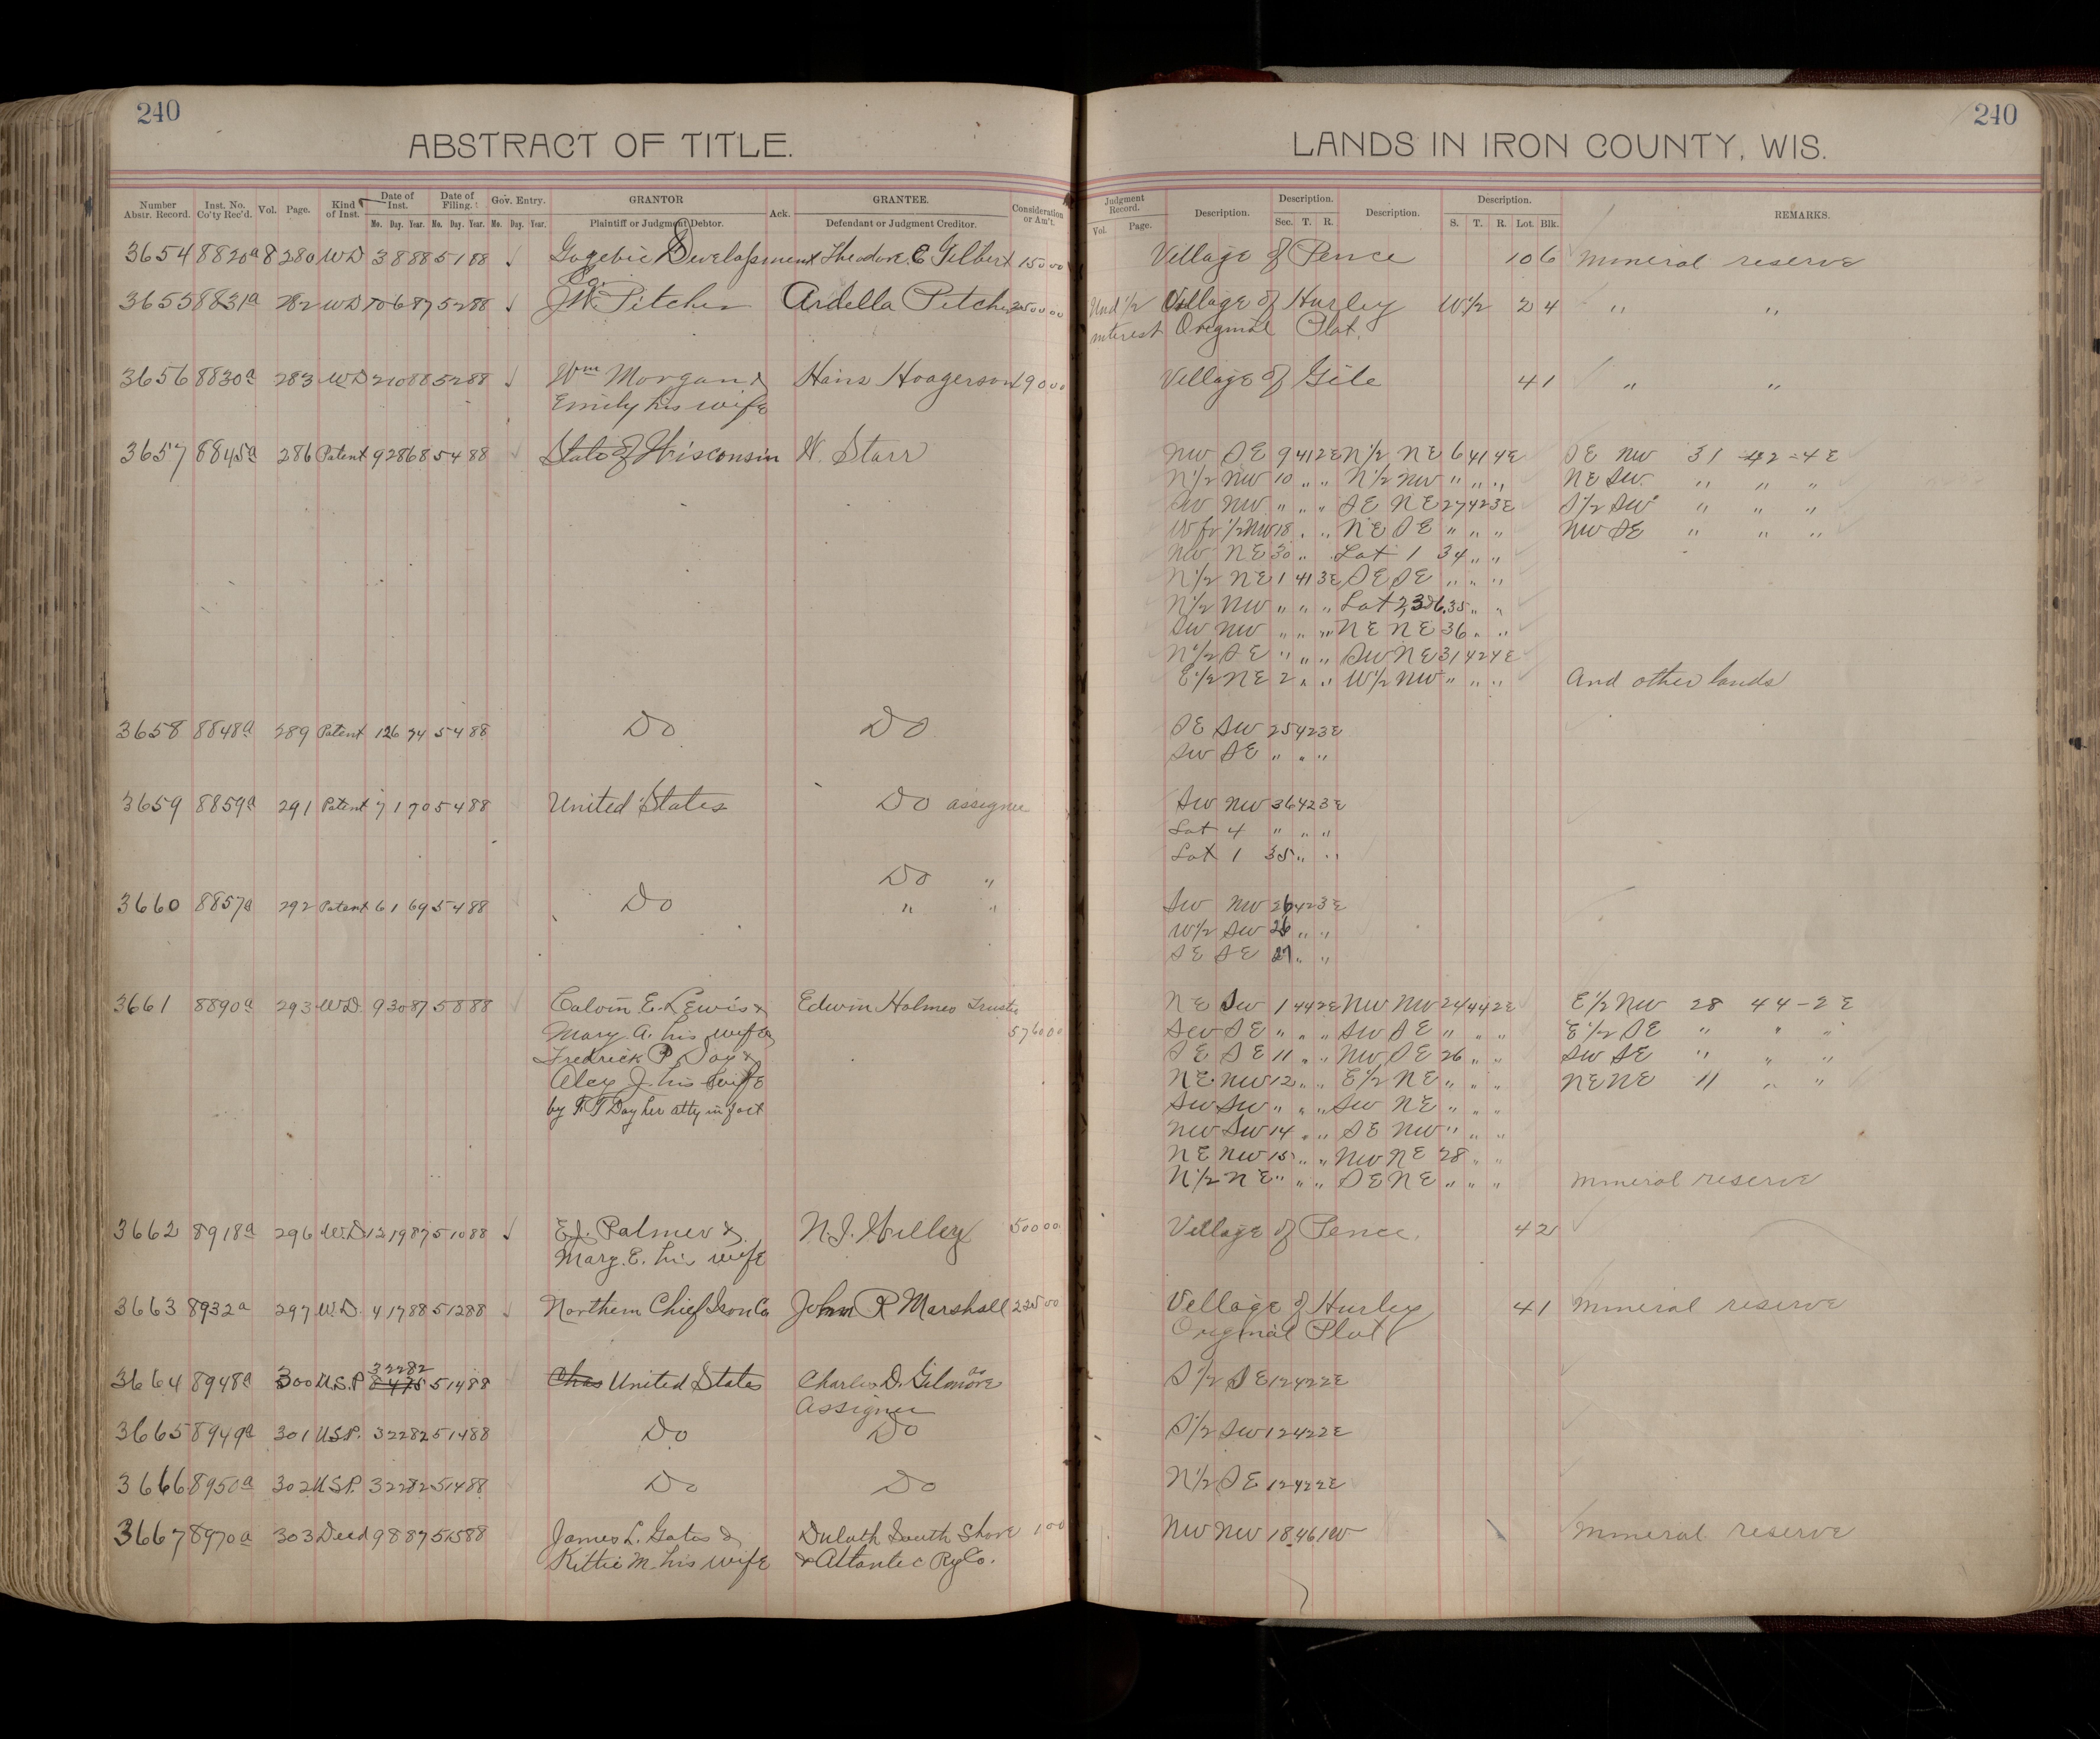 240
ABSTRACT OF TITLE.
Number Abstr. Record. Inst. No. Co'ty Rec'd. Vol. Page. Kind of Inst. Date of Inst. Mo. Day. Year. Date of Filing. Mo. Day. Year. Gov. Entry. Mo. Day. Year. GRANTOR Plaintiff or Judgment Debtor. Ack. GRANTEE. Defendant or Judgment Creditor. Consideration or Am't.
3654 8820a 8 280 WD 3 8 88 5 1 88 Gogebic Development Theodore E Gilbert 150 00
Co.
3655 8831a 282 WD 10 6 87 5 2 88 JW. Pitcher Ardella Pitcher 2500 00
3656 8830a 283 WD 2 10 88 5 2 88 Wm Morgan & Hans Hoagerson 190 00
Emily his wife
3657 8845a 286 Patent 9 28 68 5 4 88 State of Wisconsin W. Starr
3658 8848a 289 Patent 1 26 74 5 4 88 Do Do
3659 8859a 291 Patent 7 1 70 5 4 88 United States Do assignee
Do "
3660 8857a 292 Patent 6 1 69 5 4 88 Do " "
3661 8890a 293 WD. 9 30 87 5 8 88 Calvin E. Lewis & Edwin Holmes Trustee
Mary A. his wife 5760 00
Fredrick P. Day &
Alex J. his wife
by F. T Day her atty in fact
3662 8918a 296 W.D 12 19 87 5 10 88 E.J. Palmer & N.J. Hulley 500 00
Mary. E. his wife
3663 8932a 297 W.D. 4 17 88 5 12 88 Northern Chief Iron Co John R Marshall 225 00
3 22 82
3664 8948a 300 U.S.P 5 14 88 Chas United States Charles D. Gilmore
Assignee
3665 8949a 301 U.S.P. 3 22 82 5 14 88 Do Do
3666 8950a 302 U.S.P. 3 22 82 5 14 88 Do Do
3667 8970a 303 Deed 9 8 87 5 15 88 James L. Gates & Duluth South Shore 1 00
Kittie M. his wife & Atlantic Ry Co.
240
LANDS IN IRON COUNTY, WIS.
Judgment Record. Vol. Page. Description. Description. Sec. T. R. Description. Description. S. T. R. Lot. Blk. REMARKS.
Village of Pence 10 6 Mineral reserve
Und 1/2 Village of Hurley W 1/2 2 4 " "
interest Original Plat.
Village of Gile 4 1 " "
NW SE 9 41 2E N 1/2 NE 6 41 4E SE NW 31 42-4E
N 1/2 NW 10 " " N 1/2 NW " " " NE SW " " "
SW NW " " " SE NE 27 42 3E S 1/2 SW " " "
W fr 1/2 NW 18 " " NE SE " " " NW SE " " "
NW NE 30 " " Lot 1 34 " "
N 1/2 NE 1 41 3E SE SE " " "
N 1/2 NW " " " Lot 2,3&6,35 " "
SW NW " " " NE NE 36 " "
N 1/2 SE " " " SW NE 31 42 4E
E 1/2 NE 2 " " W 1/2 NW " " " And other lands
SE SW 25 42 3E
SW SE " " "
SW NW 36 42 3E
Lot 4 " " "
Lot 1 35 " "
SW NW 26 42 3E
W 1/2 SW 26 " "
SE SE 27 " "
NE SW 1 44 2E NW NW 24 44 2E E 1/2 NW 28 44-2E
SW SE " " " SW SE " " " E 1/2 SE " " "
SE SE 11 " " NW SE 26 " " SW SE " " "
NE NW 12 " " E 1/2 NE " " " NE NE 11 " "
SW SW " " " SW NE " " "
NW SW 14 " " SE NW " " "
NE NW 15 " " NW NE 28 " "
N 1/2 NE " " " SE NE " " " Mineral reserve
Village of Pence. 4 2
Village of Hurley 4 1 Mineral reserve
Original Plat
S 1/2 SE 12 42 2E
S 1/2 SW 12 42 2E
N 1/2 SE 12 42 2E
NW NW 18 46 1W Mineral reserve